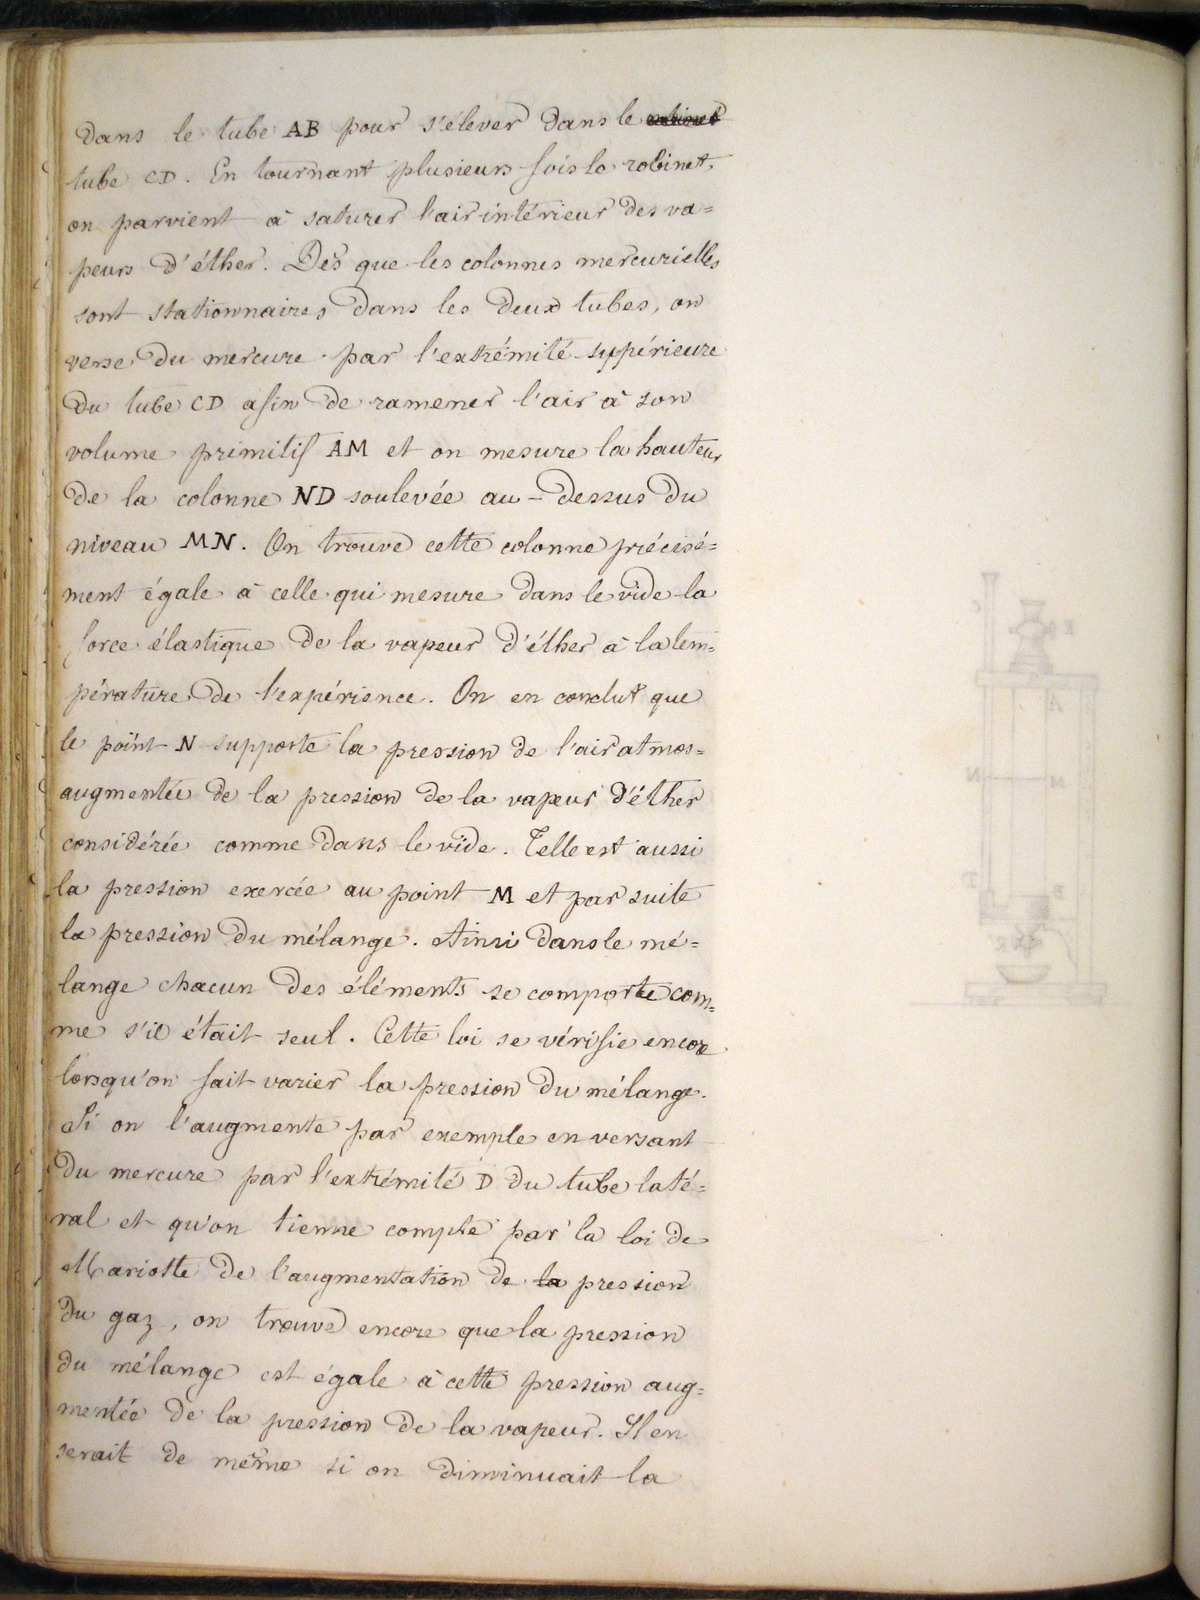 dans le tube AB pour s'élever dans le
tube CD. En tournant plusieurs fois le robinet,
on parvient à saturer l'air intérieur des va=
peurs d'éther. Dès que les colonnes mercurielles
sont stationnaires dans les deux tubes, on
verse du mercure par l'extrémité suppérieure
du tube CD afin de ramener l'air à son
volume primitif AM et on mesure la hauteur
de la colonne ND soulevée au-dessus du
niveau MN. On trouve cette colonne précisé=
ment égale à celle qui mesure dans le vide la
force élastique de la vapeur d'éther à la tem=
pérature de l'expérience. On en conclut que
le point N supporte la pression de l'air atmos=
augmentée de la pression de la vapeur d'éther
considérée comme dans le vide. Telle est aussi
la pression exercée au point M et par suite
la pression du mélange. Ainsi dans le mé=
lange chacun des éléments se comporte com=
me s'il était seul. Cette loi se vérifie encore
lorsqu'on fait varier la pression du mélange.
Si on l'augmente par exemple en versant
du mercure par l'extrémité D du tube laté=
ral et qu'on tienne compte par la loi de
Mariotte de l'augmentation de la pression
du gaz, on trouve encore que la pression
du mélange est égale à cette pression aug=
mentée de la pression de la vapeur. Il en
serait de même si on diminuait la